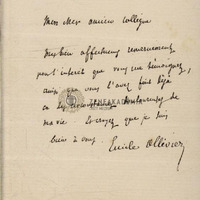 Mon cher ancien collègue
Mes bien affectueux remerciements
pour l'intérêt que vous me témoignez,
ainsi que vous l'avez fait déjà
en les circonstances douloureuses de
ma vie. Croyez que je suis
bien à vous.
Emile Ollivier